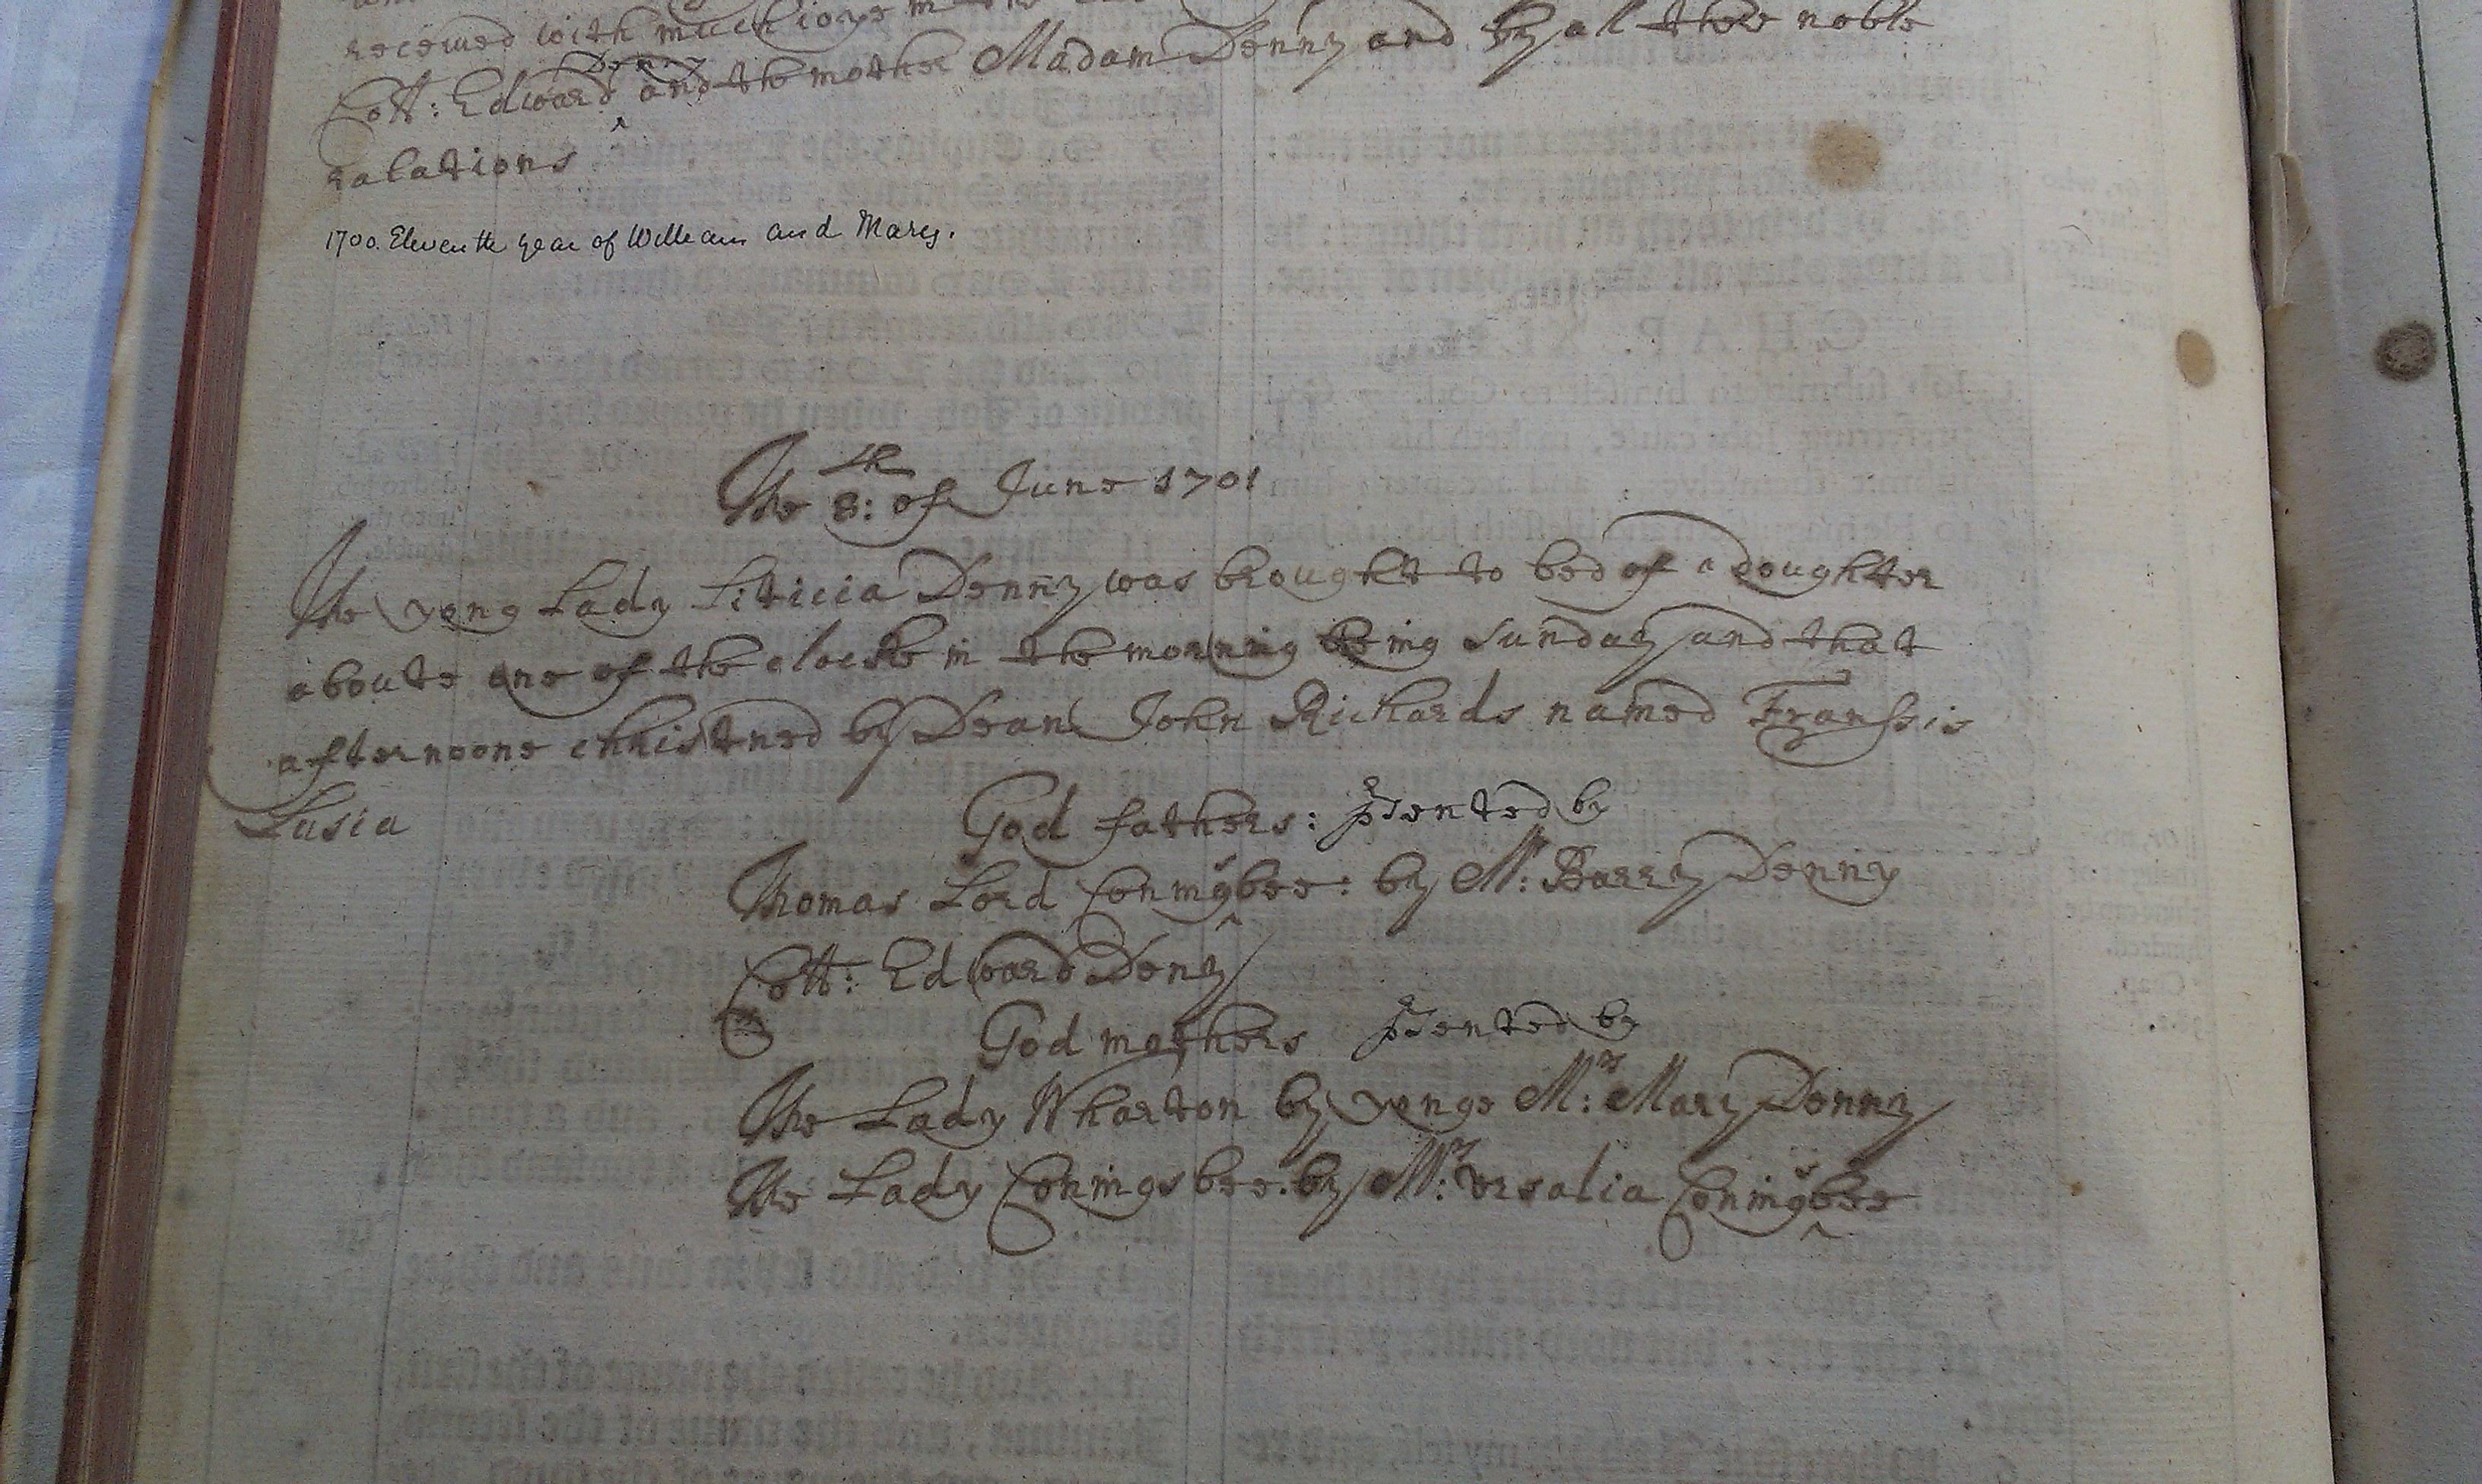 received with much joye
Coll: Edward Denny and the mother Madam Denny and by al there noble
ralations
1700. Eleventh year of William and Mary.
The 8th: of June 1701
The yong Lady Liticia Denny was brought to bed of a doughter
aboute one of the clocke in the morning being Sunday and that
afternoone christned by Dean John Richards named Franssis
Lusia
God fathers: prsented by
Thomas Lord Coningsbee: by Mr: Barry Denny
Coll: Edward Deny
God mothers prsented by
The Lady Wharton by yonge Mrs: Mary Denny
The Lady Coningsbee: by Mrs: Ursalia Coningsbee